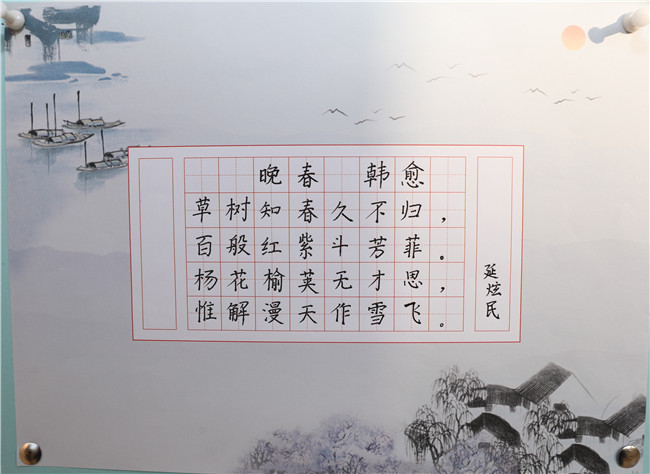 晚春 韩愈
草树知春久不归，
百般红紫斗芳菲。
杨花榆荚无才思，
惟解漫天作雪飞。
延炫民